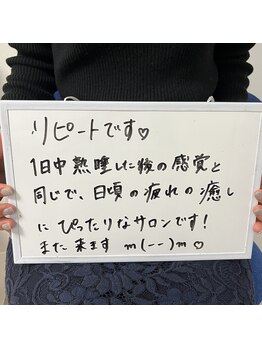 リピートです♡
1日中熟睡した後の感覚と
同じで、日頃の疲れの癒し
にぴったりなサロンです！
また来ます m(--)m ♡